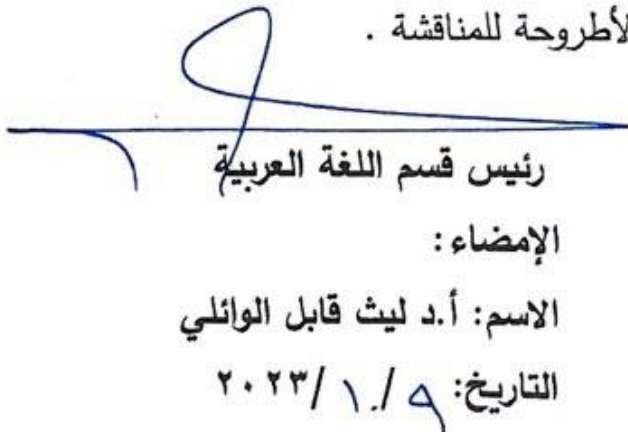 لأطروحة للمناقشة .
رئيس قسم اللغة العربية
الإمضاء :
الاسم: أ.د ليث قابل الوائلي
التاريخ: ٩ / ١٠ / ٢٠٢٣